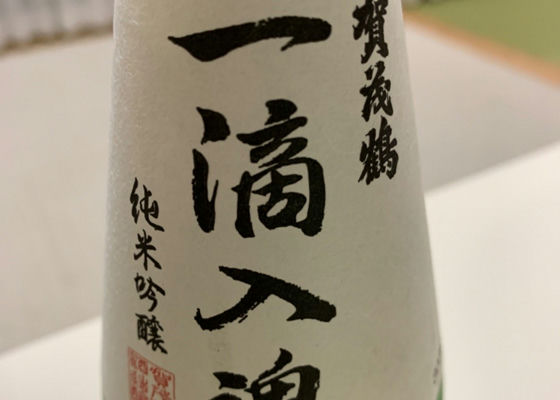 賀茂鶴
一滴入魂
純米吟醸